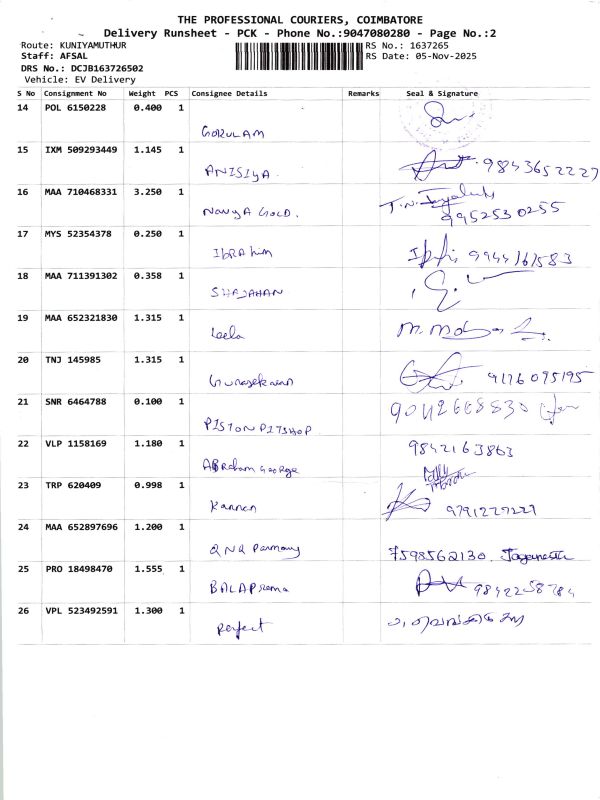 THE PROFESSIONAL COURIERS, COIMBATORE
Delivery Runsheet - PCK - Phone No.:9047080280 - Page No.:2
Route: KUNIYAMUTHUR RS No.: 1637265
Staff: AFSAL RS Date: 05-Nov-2025
DRS No.: DCJB163726502
Vehicle: EV Delivery
S No Consignment No Weight PCS Consignee Details Remarks Seal & Signature
14 POL 6150228 0.400 1
GOKULAM
15 IXM 509293449 1.145 1
ANISIYA. 9843652227
16 MAA 710468331 3.250 1
NANYA GOLD. T.N. 9952530255
17 MYS 52354378 0.250 1
IBRAHim 9944161583
18 MAA 711391302 0.358 1
SHAJAHAN
19 MAA 652321830 1.315 1
Leela
20 TNJ 145985 1.315 1
Gunasekaran 9176095195
21 SNR 6464788 0.100 1
PISTON PITSHOP
22 VLP 1158169 1.180 1 9842163863
ABRaham George
23 TRP 620409 0.998 1
Kannan 9791227227
24 MAA 652897696 1.200 1
7598562130.
25 PRO 18498470 1.555 1
BALAPrema
26 VPL 523492591 1.300 1
Perfect